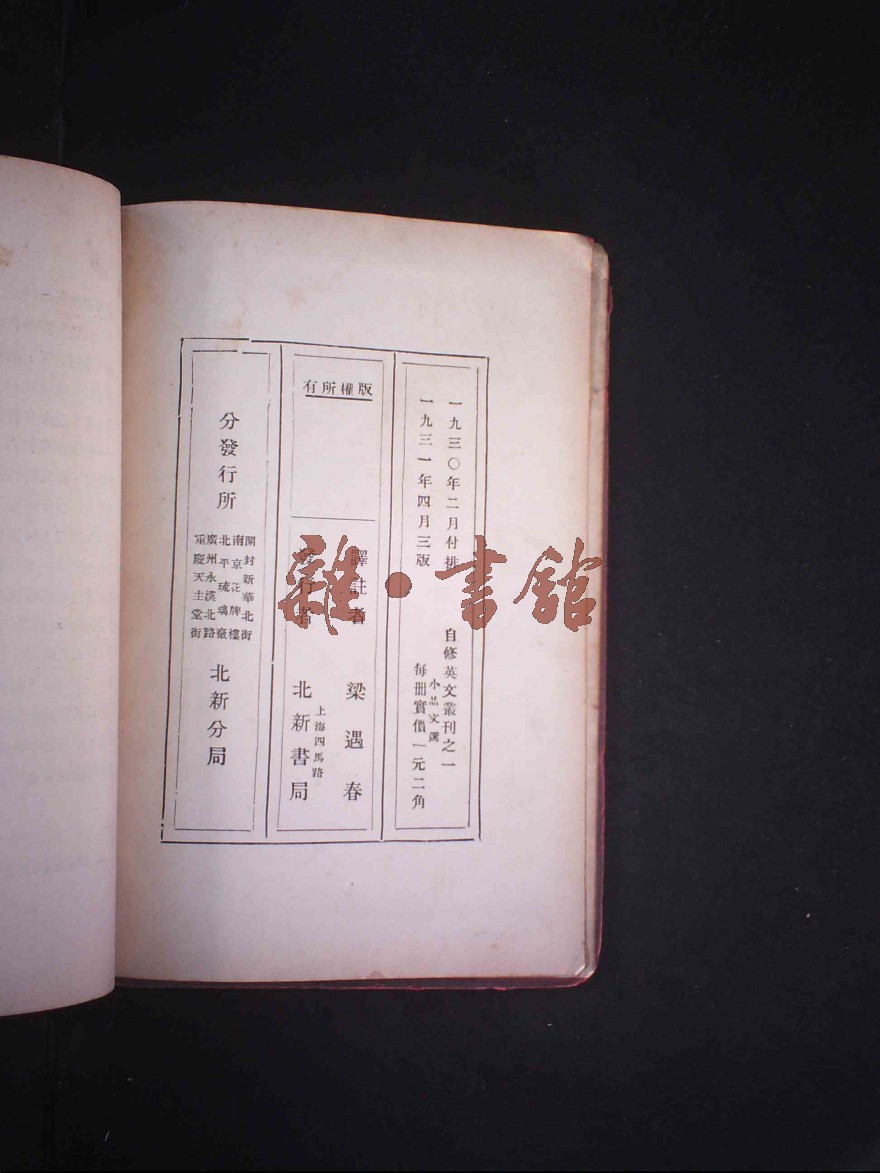 一九三〇年二月付排
一九三一年四月三版
自修英文叢刊之一
小品文選
每冊實價一元二角
版權所有
譯註者 梁遇春
發行者 上海四馬路 北新書局
分發行所
開封新華北街
南京花牌樓
北平琉璃廠
廣州永漢北路
重慶天主堂街
北新分局
雜·書館